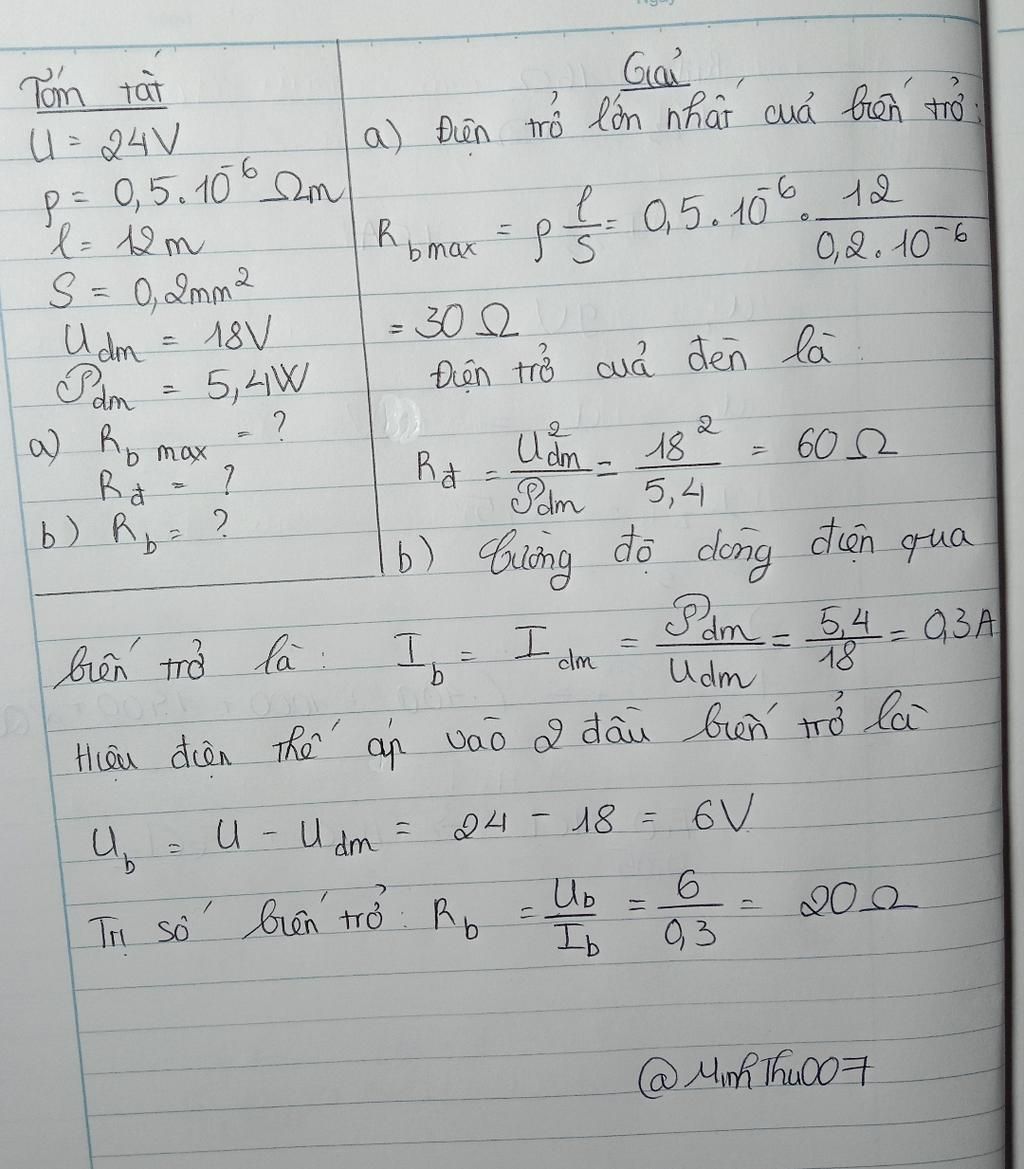 Tóm tắt
U = 24V
ρ = 0,5.10⁻⁶ Ωm
l = 12m
S = 0,2mm²
Udm = 18V
𝒫dm = 5,4W
a) Rb max = ?
Rđ = ?
b) Rb = ?
Giải
a) Điện trở lớn nhất cuả biến trở:
Rb max = ρ l/S = 0,5.10⁻⁶ . 12/0,2.10⁻⁶
= 30 Ω
Điện trở cuả đèn là:
Rđ = U²dm/𝒫dm = 18²/5,4 = 60 Ω
b) Cường độ dòng điện qua
biến trở là: Ib = Idm = 𝒫dm/Udm = 5,4/18 = 0,3A
Hiệu điện thế áp vào 2 đầu biến trở là
Ub = U - Udm = 24 - 18 = 6V
Trị số biến trở: Rb = Ub/Ib = 6/0,3 = 20 Ω
@MinhThu007